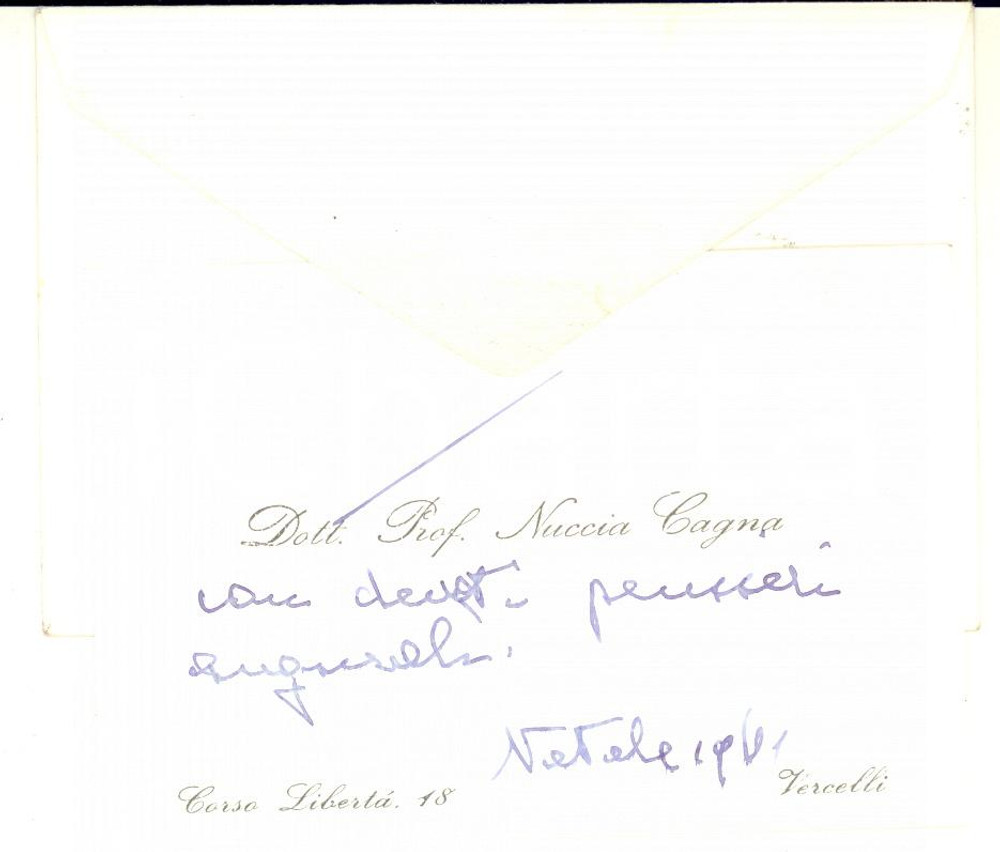 Dott. Prof. Nuccia Cagna
con devoti pensieri
augurali.
Natale 19
Corso Libertá. 18
Vercelli